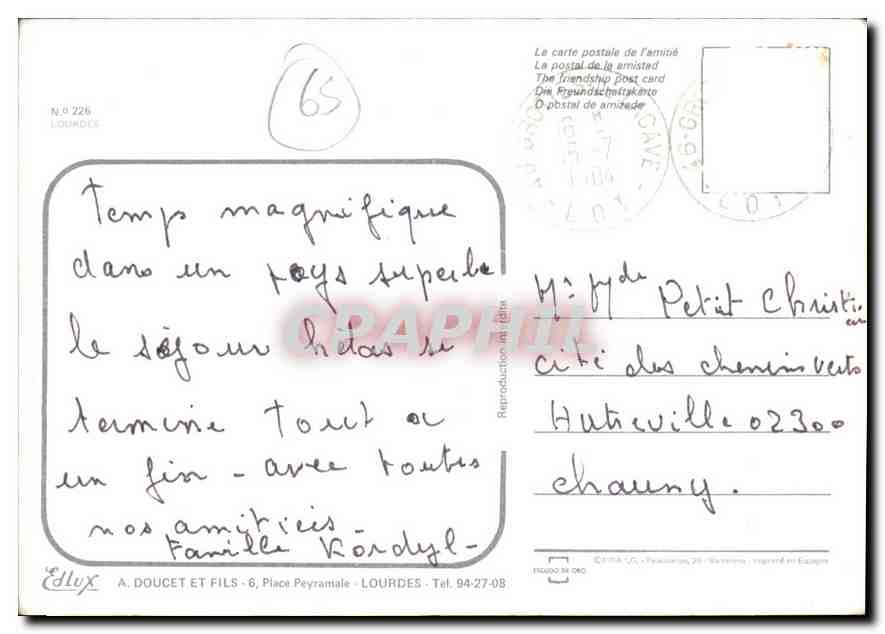 La carte postale de l'amitié
La postal de la amistad
The friendship post card
Die Freundschaftskarte
O postal de amizade
65
N.º 226
LOURDES
Temps magnifique
dans un pays superbe
le séjour hélas se
termine Tout a
un fin - avec toutes
nos amitiés -
Famille Kordyl -
Reproduction interdite
CPAPHIL
Mr Mde Petit Christian
cité des chemins verts
Autreville 02300
Chauny.
Edlux
A. DOUCET ET FILS - 6, Place Peyramale - LOURDES - Tel. 94-27-08
ESCUDO DE ORO